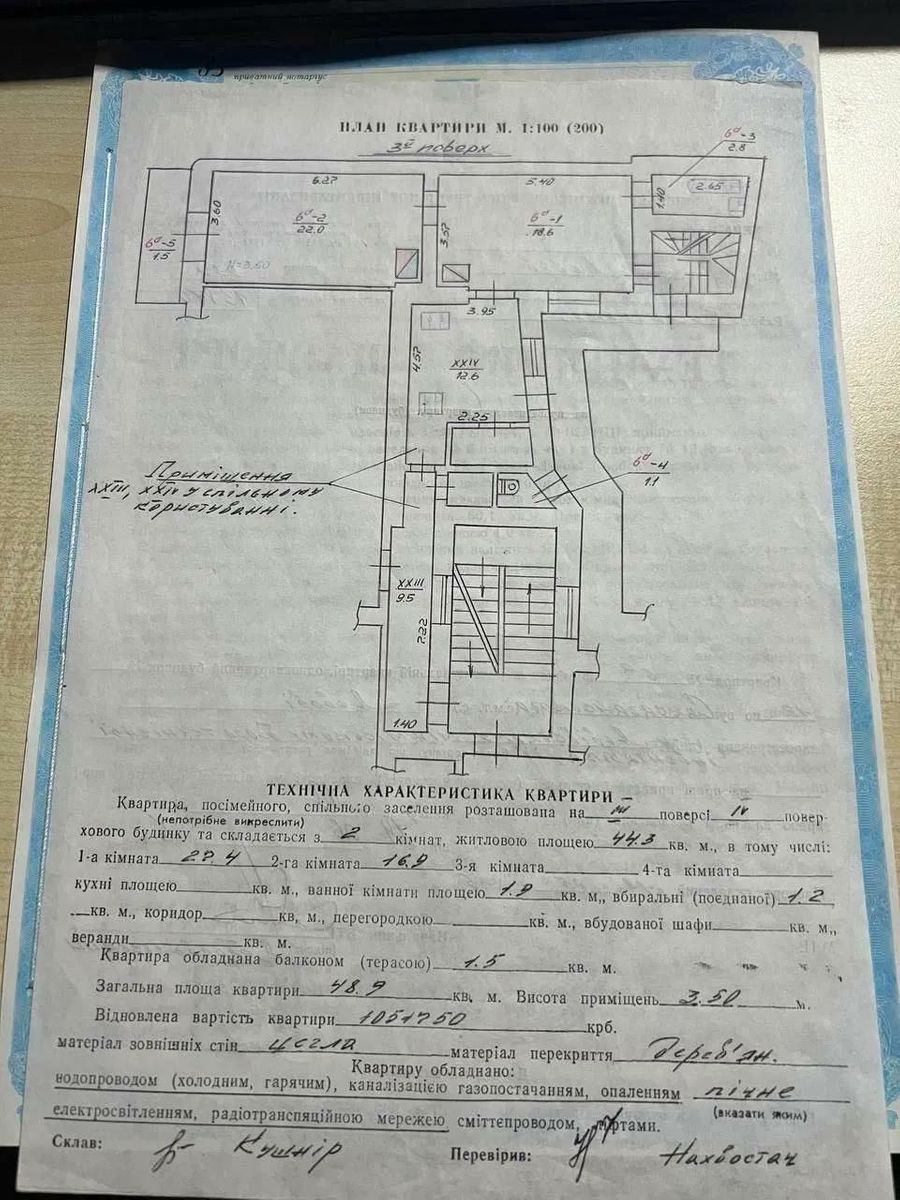 приватний нотаріус
ПЛАН КВАРТИРИ М. 1:100 (200)
3й поверх
6а-3
2.8
6.27
5.40
2.65
1.40
3.60
6а-2
22.0
3.57
6а-1
18.6
6а-5
1.5
H=3.50
3.95
4.57
XXIV
12.6
2.25
6а-4
1.1
Приміщення
XXIII, XXIV у спільному
користуванні.
XXIII
9.5
7.22
1.40
ТЕХНІЧНА ХАРАКТЕРИСТИКА КВАРТИРИ
Квартира, посімейного, спільного заселення розташована на III поверсі IV повер-
(непотрібне викреслити)
хового будинку та складається з 2 кімнат, житловою площею 44.3 кв. м., в тому числі:
1-а кімната 27.4 2-га кімната 16.9 3-я кімната 4-та кімната
кухні площею кв. м., ванної кімнати площею 1.9 кв. м., вбиральні (поєднаної) 1.2
кв. м., коридор кв, м., перегородкою кв. м., вбудованої шафи кв. м.,
веранди кв. м.
Квартира обладнана балконом (терасою) 1.5 кв. м.
Загальна площа квартири 48.9 кв. м. Висота приміщень 3.50 м.
Відновлена вартість квартири 1051750 крб.
матеріал зовнішніх стін цегла матеріал перекриття дерев'ян.
Квартиру обладнано:
водопроводом (холодним, гарячим), каналізацією газопостачанням, опаленням пічне
(вказати яким)
електросвітленням, радіотранспяційною мережею сміттєпроводом, ліфтами.
Склав: Кушнір Перевірив: Нахвостач